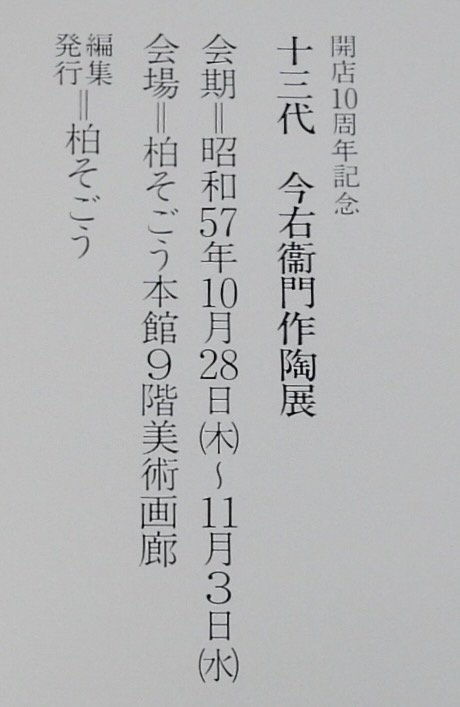 開店10周年記念
十三代　今右衞門作陶展
会期＝昭和57年10月28日㈭〜11月3日㈬
会場＝柏そごう本館9階美術画廊
編集
発行＝柏そごう